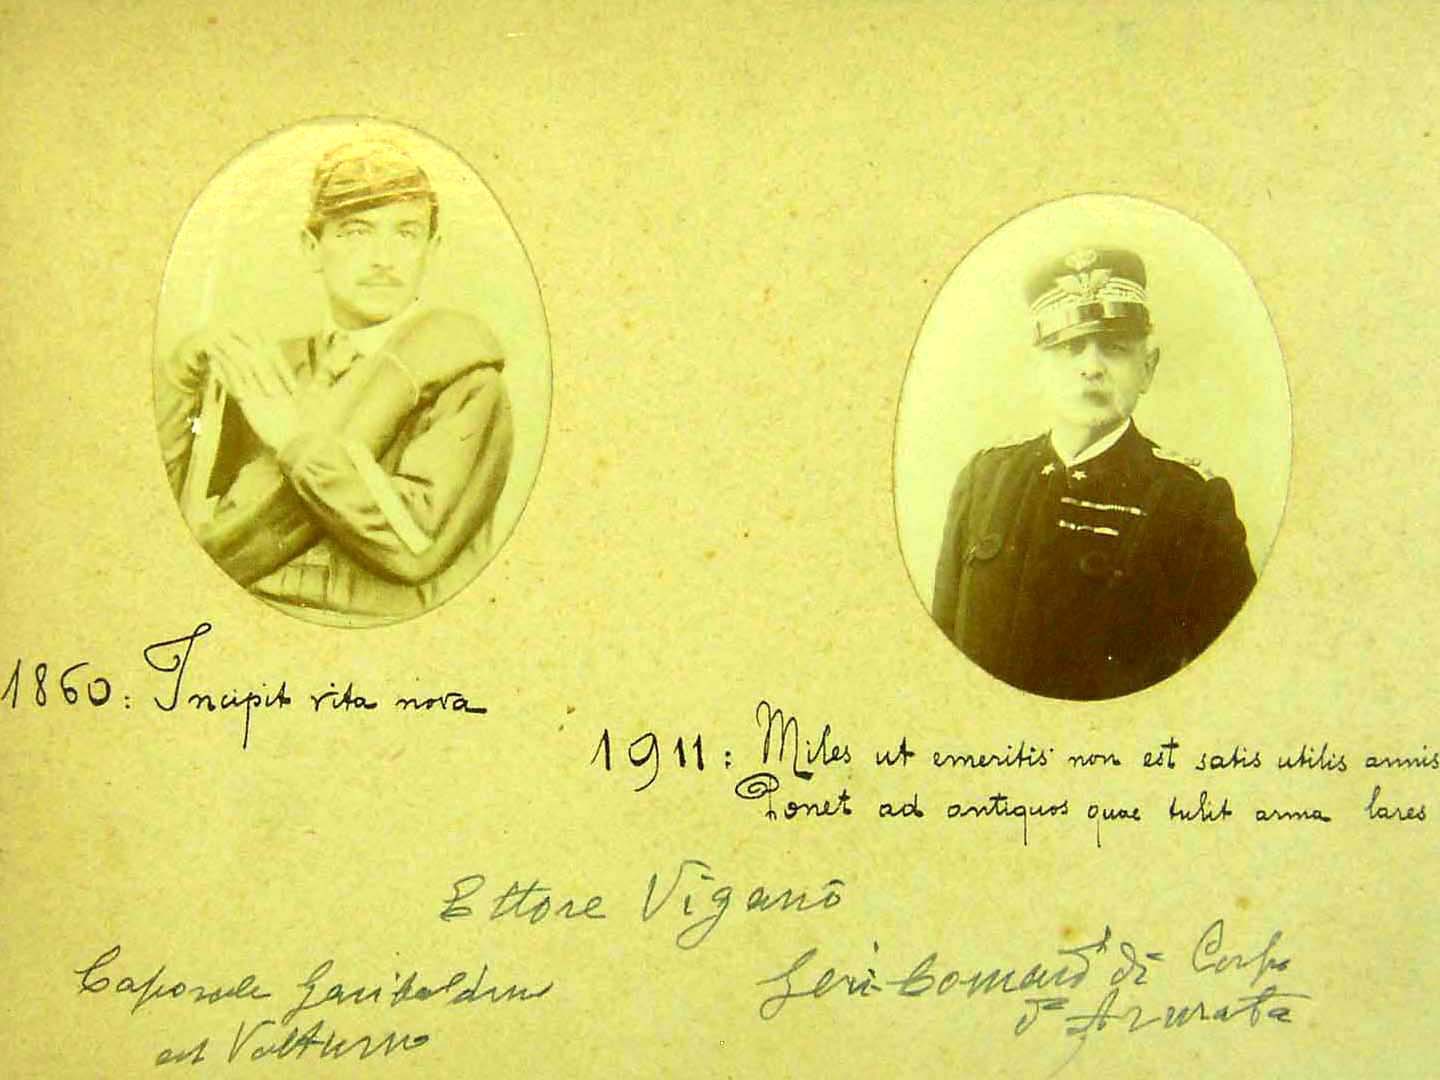 1860: Incipit vita nova
1911: Miles ut emeritis non est satis utilis annis
Ponet ad antiquos quae tulit arma lares
Ettore Viganò
Caporale Garibaldino
al Volturno
Comand.te di Corpo
d'Armata